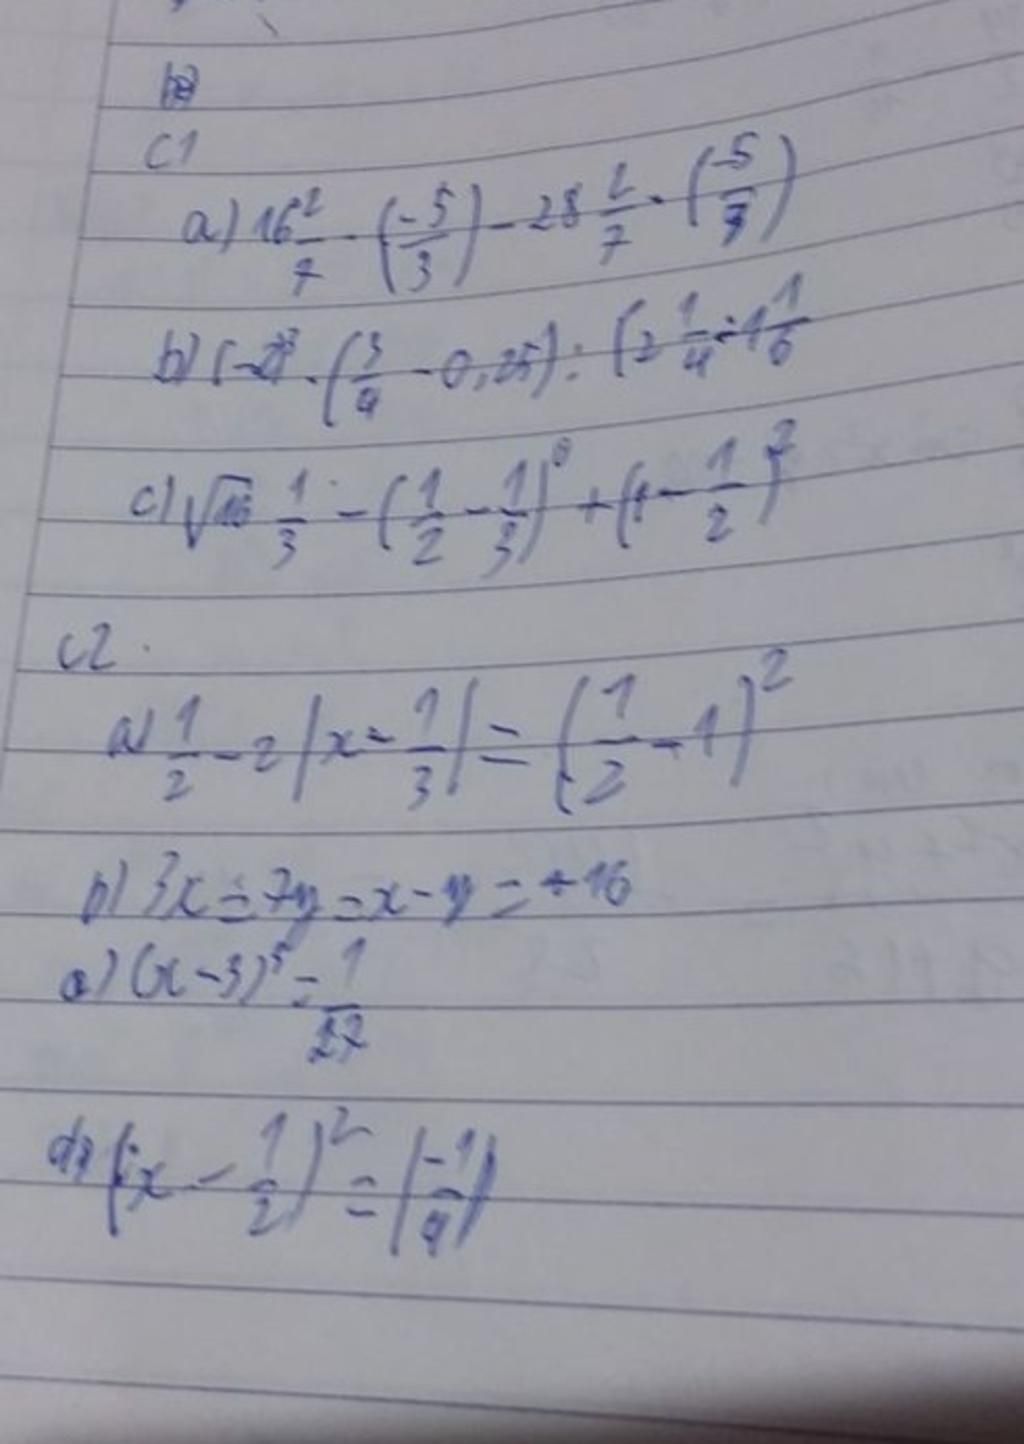 C1
a) 16 2/7 . (-5/3) - 28 2/7 . (-5/3)
b) (-2)³ . (3/4 - 0,25) : (2 1/4 - 1 1/6
c) √16 1/3 - (1/2 - 1/3)⁰ + (1 - 1/2)²
C2
a) 1/2 - 2 |x - 1/3| = (1/2 - 1)²
b) 3x = 7y = x - y = + 16
c) (x - 3)⁵ = 1/27
d) (x - 1/2)² = |-1/4|